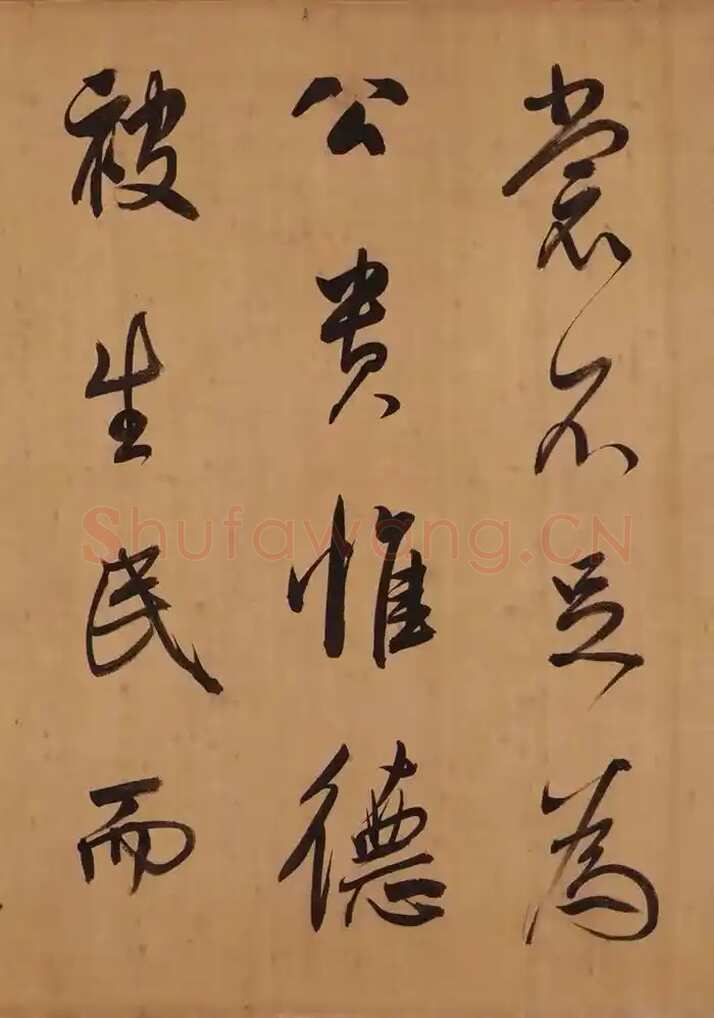 裳不足為
公貴惟德
被生民而
Shufawang.CN